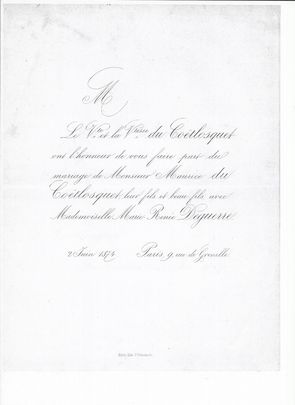 M
Le Vte et la Vtesse du Coëtlosquet
ont l'honneur de vous faire part du
mariage de Monsieur Maurice du
Coëtlosquet leur fils et beau fils avec
Mademoiselle Marie Renée Deguerre
2 Juin 1874 Paris, 9, rue de Grenelle